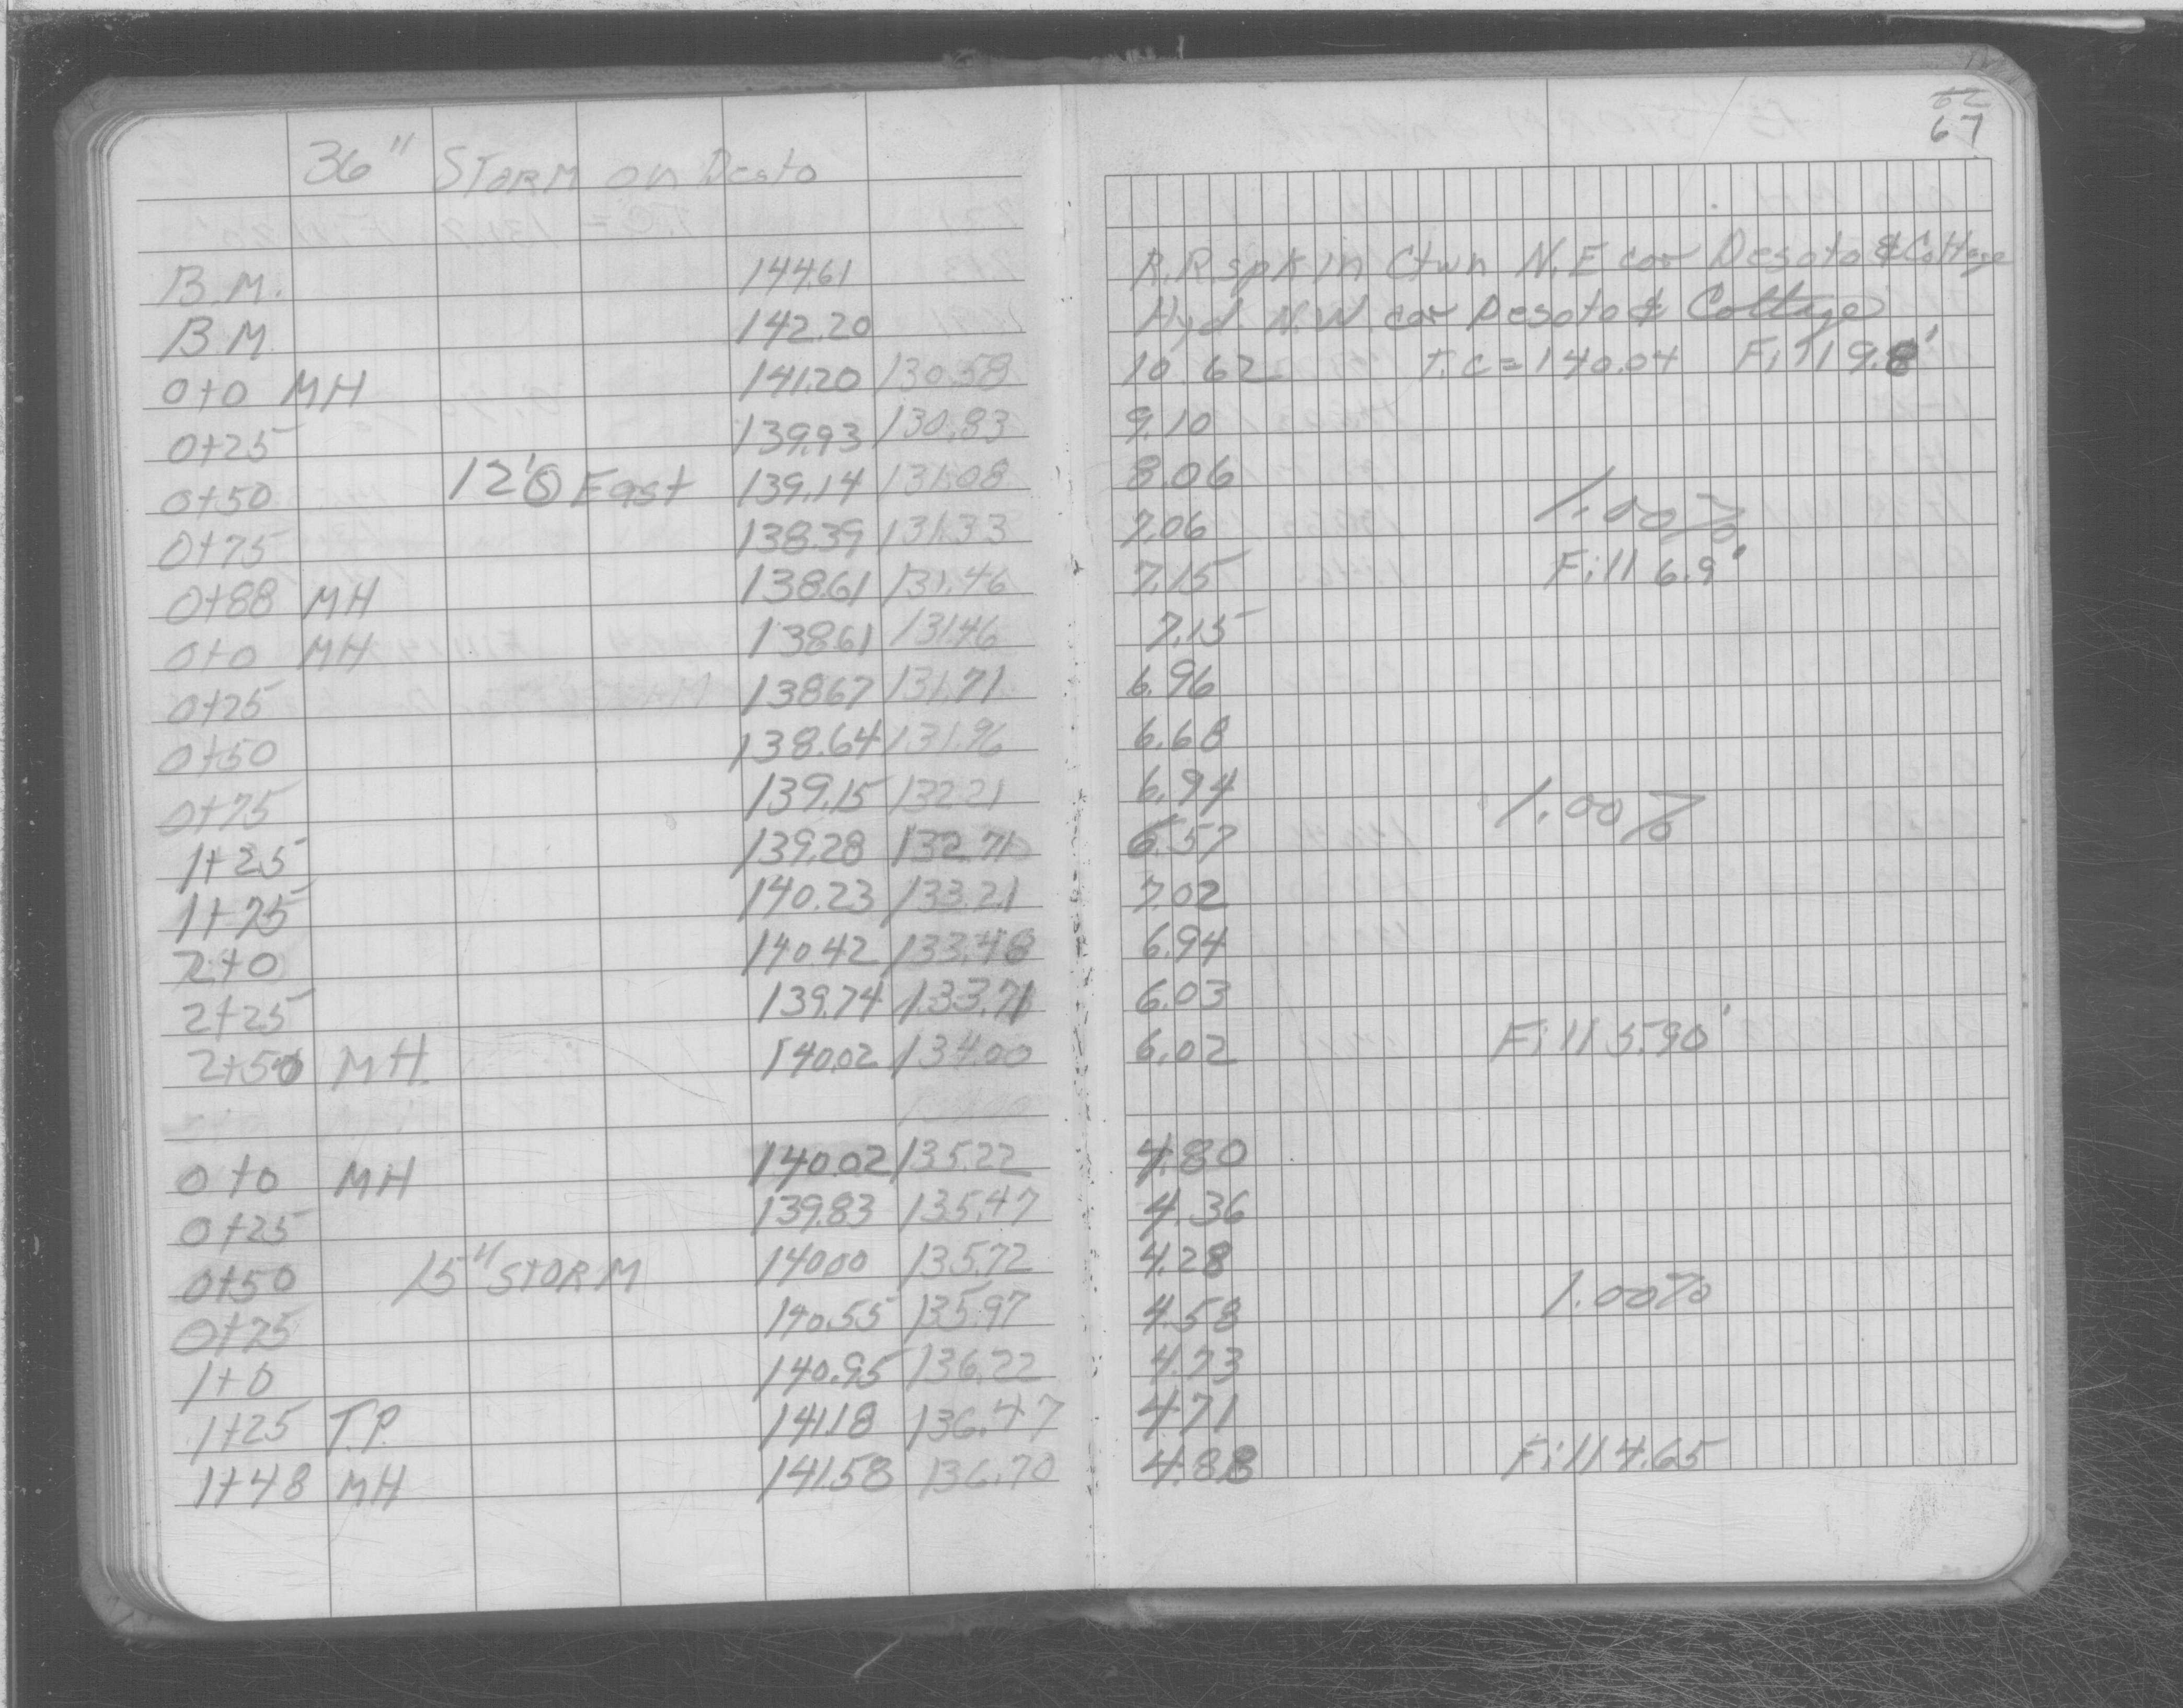 62
67
36" STORM on Desto
B.M. 144.61 R.R. spk in Ctwn N.E cor Desoto & Cottage
B.M. 142.20 Hyd. N.W. cor Desoto & Cottage
0+0 MH 141.20 130.58 10.62 T.C = 140.04 Fill 9.8'
0+25 139.93 130.83 9.10
0+50 12' East 139.14 131.08 8.06
0+75 138.39 131.33 7.06 1.00%
0+88 MH 138.61 131.46 7.15 Fill 6.9'
0+0 MH 138.61 131.46 7.15
0+25 138.67 131.71 6.96
0+50 138.64 131.96 6.68
0+75 139.15 132.21 6.94 1.00%
1+25 139.28 132.71 6.57
1+75 140.23 133.21 7.02
2+0 140.42 133.48 6.94
2+25 139.74 133.71 6.03
2+50 MH. 140.02 134.00 6.02 Fill 5.90'
0+0 MH 140.02 135.22 4.80
0+25 139.83 135.47 4.36
0+50 15" STORM 140.00 135.72 4.28
0+75 140.55 135.97 4.58 1.00%
1+0 140.95 136.22 4.73
1+25 T.P. 141.18 136.47 4.71
1+48 MH 141.58 136.70 4.88 Fill 4.65